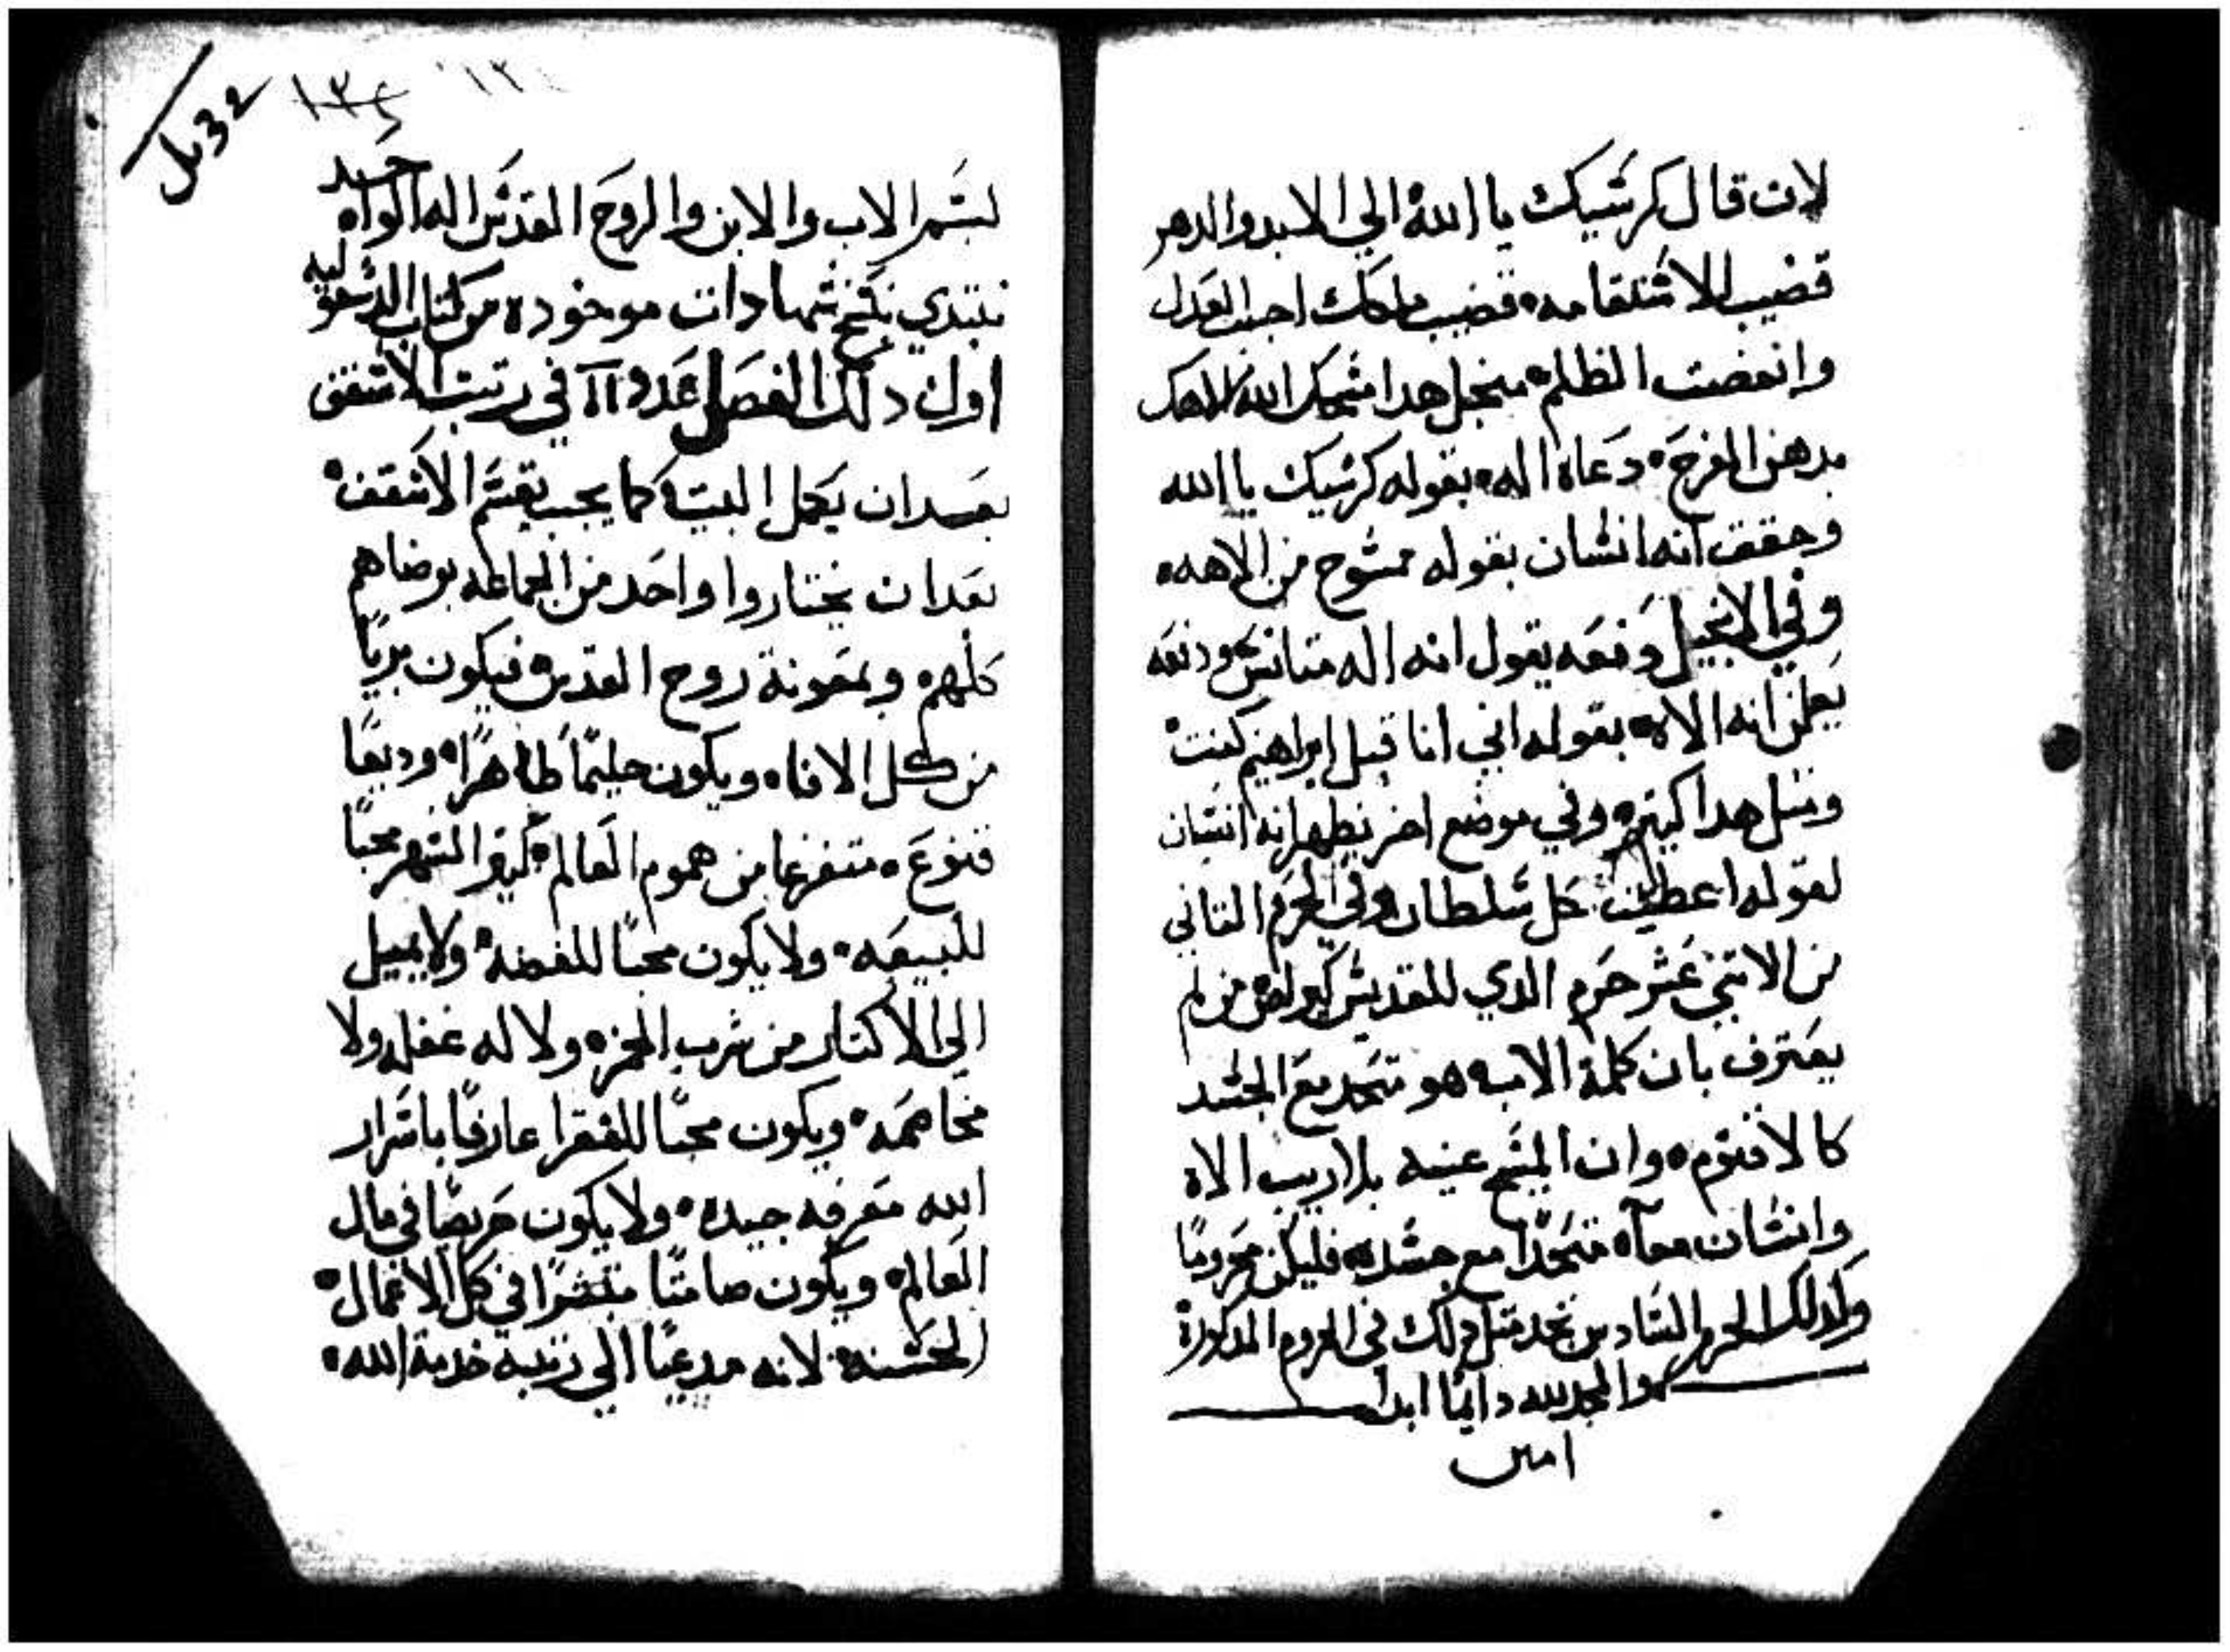 لان قال كرشيك يا الله الي الابد والدهر
قضيب الاستقامه قضيب ملكك احببت العدل
وانغضت الظلم منجل هدا مشحك الله الاهك
بدهن الفرح دعاه اله بقوله كرشيك يا الله
وحقق انه انشان بقوله ممشوح من الاهه
وفي الانجيل دفعه يقول انه اله متانس ودفعه
يعلن انه الاه بقوله اني انا قبل ابراهيم كنت
ومتل هدا كتيره وفي موضع اخر يظهر انه انشان
لقوله اعطيت كل شلطان وفي الحرم التاني
من الاتني عشر حرم الدي للقديش كيرلص من لم
يعترف بان كلمة الاب هو متحد مع الجشد
كالاقنوم وان المشيح عينه بلا ريب الاه
وانشان معآ متحدًا مع جشده فليكن محرومًا
وكدلك الحرم السادس تجد متل دلك في الحروم المدكورة
والمجد لله دايمًا ابدا
امين
32
١٣٤
بسم الاب والابن والروح القدس اله الواحد
نبتدي شهادات موخوده من كتاب الدسقوليه
اول دلك الفصل عدد في رتبت الاسقف
بعد ان يكمل البيت كما يجب يقسم الاسقف
بعد ان يختاروا واحد من الجماعه برضاهم
كلهم وبمعونة روح القدس فيكون بريًا
من كل الافاه ويكون حليمًا طاهرًا وديعًا
قنوع متفرغا من هموم العالم كتير السهر محبًا
للبيعه ولا يكون محبًا للفضه ولا يميل
الي الاكتار من شرب الخمر ولا له غفله ولا
مخاصمه ويكون محبًا للفقرا عارفًا باسرار
الله معرفه جيده ولا يكون حريصًا في مال
العالم ويكون صامتًا متصبرًا في كل الاعمال
الحسنه لانه مدعيًا الي رتبه خدمة الله